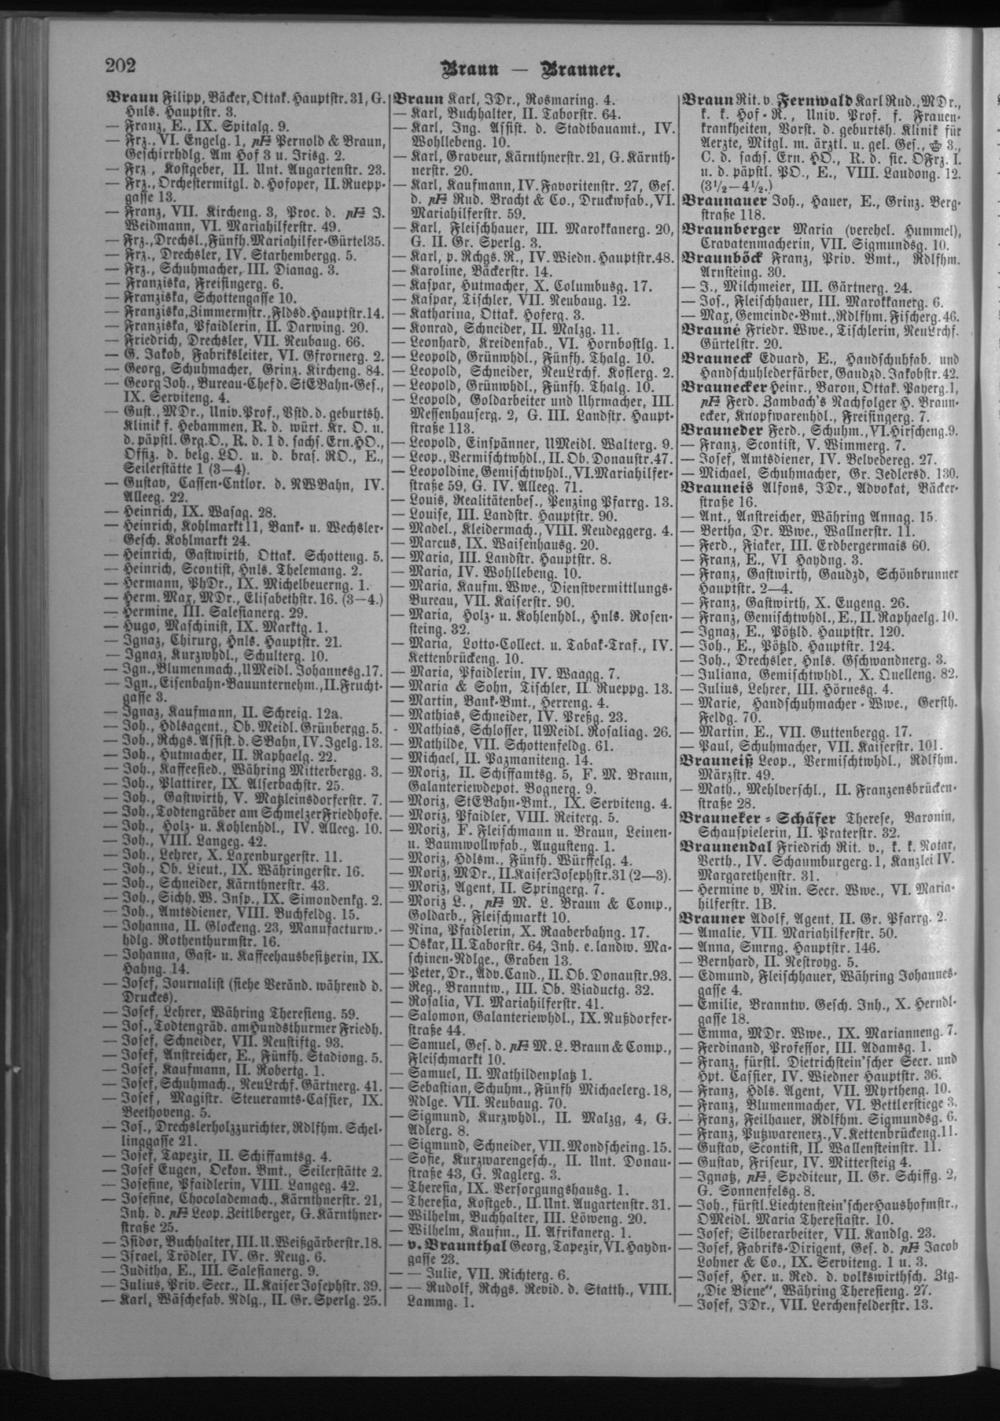 202
Braun — Brauner.
Braun Filipp, Bäcker, Ottak. Hauptstr. 31, G.
Hnls. Hauptstr. 3.
— Franz, E., IX. Spitalg. 9.
— Frz., VI. Engelg. 1, Pernold & Braun,
Geschirrhdlg. Am Hof 3 u. Irisg. 2.
— Frz., Kostgeber, II. Unt. Augartenstr. 23.
— Frz., Orchestermitgl. d. Hofoper, II. Ruepp-
gasse 13.
— Franz, VII. Kircheng. 3, Proc. d. J.
Weidmann, VI. Mariahilferstr. 49.
— Frz., Drechsl., Fünfh. Mariahilfer-Gürtel 35.
— Frz., Drechsler, IV. Starhembergg. 5.
— Frz., Schuhmacher, III. Dianag. 3.
— Franziska, Freisingerg. 6.
— Franziska, Schottengasse 10.
— Franziska, Zimmermstr., Fldsd. Hauptstr. 14.
— Franziska, Pfaidlerin, II. Darwing. 20.
— Friedrich, Drechsler, VII. Neubaug. 66.
— G. Jakob, Fabriksleiter, VI. Gfrornerg. 2.
— Georg, Schuhmacher, Grinz. Kircheng. 84.
— Georg Joh., Bureau-Chef d. StEBahn-Ges.,
IX. Serviteng. 4.
— Gust., MDr., Univ. Prof., Vstd. d. geburtsh.
Klinik f. Hebammen, R. d. würt. Kr. O. u.
d. päpstl. Grg. O., R. d. 1 d. sachs. Ern. HO.,
Offiz. d. belg. LO. u. d. bras. RO., E.,
Seilerstätte 1 (3—4).
— Gustav, Cassen-Cntlor. d. NWBahn, IV.
Alleeg. 22.
— Heinrich, IX. Wasag. 28.
— Heinrich, Kohlmarkt 11, Bank- u. Wechsler-
Gesch. Kohlmarkt 24.
— Heinrich, Gastwirth, Ottak. Schotteng. 5.
— Heinrich, Scontist, Hnls. Thelemang. 2.
— Hermann, PhDr., IX. Michelbeuerng. 1.
— Herm. Max, MDr., Elisabethstr. 16. (3—4.)
— Hermine, III. Salesianerg. 29.
— Hugo, Maschinist, IX. Marktg. 1.
— Ignaz, Chirurg, Hnls. Hauptstr. 21.
— Ignaz, Kurzwhdl., Schulterg. 10.
— Ign., Blumenmach., UMeidl. Johannesg. 17.
— Ign., Eisenbahn-Bauunternehm., II. Frucht-
gasse 3.
— Ignaz, Kaufmann, II. Schreig. 12a.
— Joh., Hdlsagent., Ob. Meidl. Grünbergg. 5.
— Joh., Rchgs. Assist. d. SBahn, IV. Igelg. 13.
— Joh., Hutmacher, II. Raphaelg. 22.
— Joh., Kaffeesied., Währing Mitterbergg. 3.
— Joh., Plattirer, IX. Alserbachstr. 25.
— Joh., Gastwirth, V. Matzleinsdorferstr. 7.
— Joh., Todtengräber am Schmelzer Friedhofe.
— Joh., Holz- u. Kohlenhdl., IV. Alleeg. 10.
— Joh., VIII. Langeg. 42.
— Joh., Lehrer, X. Laxenburgerstr. 11.
— Joh., Ob. Lieut., IX. Währingerstr. 16.
— Joh., Schneider, Kärnthnerstr. 43.
— Joh., Sichh. W. Insp., IX. Simondenkg. 2.
— Joh., Amtsdiener, VIII. Buchfeldg. 15.
— Johanna, II. Glockeng. 23, Manufacturw.-
hdlg. Rothenthurmstr. 16.
— Johanna, Gast- u. Kaffeehausbesitzerin, IX.
Hahng. 14.
— Josef, Journalist (siehe Veränd. während d.
Druckes).
— Josef, Lehrer, Währing Theresieng. 59.
— Jos., Todtengräb. am Hundsthurmer Friedh.
— Josef, Schneider, VII. Neustiftg. 93.
— Josef, Anstreicher, E., Fünfh. Stadiong. 5.
— Josef, Kaufmann, II. Robertg. 1.
— Josef, Schuhmach., NeuLrchf. Gärtnerg. 41.
— Josef, Magistr. Steueramts-Cassier, IX.
Beethoveng. 5.
— Jos., Drechslerholzzurichter, Rdlfhm. Schel-
linggasse 21.
— Josef, Tapezir, II. Schiffamtsg. 4.
— Josef Eugen, Oekon. Bmt., Seilerstätte 2.
— Josefine, Pfaidlerin, VIII. Langeg. 42.
— Josefine, Chocolademach., Kärnthnerstr. 21,
Inh. d. Leop. Zeitlberger, G. Kärnthner-
straße 25.
— Isidor, Buchhalter, III. U. Weißgärberstr. 18.
— Israel, Trödler, IV. Gr. Neug. 6.
— Juditha, E., III. Salesianerg. 9.
— Julius, Priv. Secr., II. Kaiser Josephstr. 39.
— Karl, Wäschefab. Ndlg., II. Gr. Sperlg. 25.
Braun Karl, JDr., Rosmaring. 4.
— Karl, Buchhalter, II. Taborstr. 64.
— Karl, Ing. Assist. d. Stadtbauamt., IV.
Wohllebeng. 10.
— Karl, Graveur, Kärnthnerstr. 21, G. Kärnth-
nerstr. 20.
— Karl, Kaufmann, IV. Favoritenstr. 27, Ges.
d. Rud. Bracht & Co., Druckwfab., VI.
Mariahilferstr. 59.
— Karl, Fleischhauer, III. Marokkanerg. 20,
G. II. Gr. Sperlg. 3.
— Karl, p. Rchgs. R., IV. Wiedn. Hauptstr. 48.
— Karoline, Bäckerstr. 14.
— Kaspar, Hutmacher, X. Columbusg. 17.
— Kaspar, Tischler, VII. Neubaug. 12.
— Katharina, Ottak. Hoferg. 3.
— Konrad, Schneider, II. Malzg. 11.
— Leonhard, Kreidenfab., VI. Hornbostlg. 1.
— Leopold, Grünwhdl., Fünfh. Thalg. 10.
— Leopold, Schneider, NeuLrchf. Koflerg. 2.
— Leopold, Grünwhdl., Fünfh. Thalg. 10.
— Leopold, Goldarbeiter und Uhrmacher, III.
Messenhauserg. 2, G. III. Landstr. Haupt-
straße 113.
— Leopold, Einspänner, UMeidl. Walterg. 9.
— Leop., Vermischtwhdl., II. Ob. Donaustr. 47.
— Leopoldine, Gemischtwhdl., VI. Mariahilfer-
straße 59, G. IV. Alleeg. 71.
— Louis, Realitätenbes., Penzing Pfarrg. 13.
— Louise, III. Landstr. Hauptstr. 90.
— Madel., Kleidermach., VIII. Neudeggerg. 4.
— Marcus, IX. Waisenhausg. 20.
— Maria, III. Landstr. Hauptstr. 8.
— Maria, IV. Wohllebeng. 10.
— Maria, Kaufm. Wwe., Dienstvermittlungs-
Bureau, VII. Kaiserstr. 90.
— Maria, Holz- u. Kohlenhdl., Hnls. Rosen-
steing. 32.
— Maria, Lotto-Collect. u. Tabak-Traf., IV.
Kettenbrückeng. 10.
— Maria, Pfaidlerin, IV. Waagg. 7.
— Maria & Sohn, Tischler, II. Rueppg. 13.
— Martin, Bank-Bmt., Herreng. 4.
— Mathias, Schneider, IV. Preßg. 23.
- Mathias, Schlosser, UMeidl. Rosaliag. 26.
— Mathilde, VII. Schottenfeldg. 61.
— Michael, II. Pazmaniteng. 14.
— Moriz, II. Schiffamtsg. 5, F. M. Braun,
Galanteriewdepot. Bognerg. 9.
— Moriz, StEBahn-Bmt., IX. Serviteng. 4.
— Moriz, Pfaidler, VIII. Reiterg. 5.
— Moriz, F. Fleischmann u. Braun, Leinen-
u. Baumwollwfab., Augusteng. 1.
— Moriz, Hdlsm., Fünfh. Würffelg. 4.
— Moriz, MDr., II. Kaiser Josephstr. 31 (2—3).
— Moriz, Agent, II. Springerg. 7.
— Moriz L., M. L. Braun & Comp.,
Goldarb., Fleischmarkt 10.
— Nina, Pfaidlerin, X. Raaberbahng. 17.
— Oskar, II. Taborstr. 64, Inh. e. landw. Ma-
schinen-Ndlge., Graben 13.
— Peter, Dr., Adv. Cand., II. Ob. Donaustr. 93.
— Reg., Branntw., III. Ob. Viaductg. 32.
— Rosalia, VI. Mariahilferstr. 41.
— Salomon, Galanteriewhdl., IX. Nußdorfer-
straße 44.
— Samuel, Ges. d. M. L. Braun & Comp.,
Fleischmarkt 10.
— Samuel, II. Mathildenplatz 1.
— Sebastian, Schuhm., Fünfh Michaelerg. 18,
Ndlge. VII. Neubaug. 70.
— Sigmund, Kurzwhdl., II. Malzg, 4, G.
Adlerg. 8.
— Sigmund, Schneider, VII. Mondscheing. 15.
— Sofie, Kurzwarengesch., II. Unt. Donau-
straße 43, G. Naglerg. 3.
— Theresia, IX. Versorgungshausg. 1.
— Theresia, Kostgeb., II. Unt. Augartenstr. 31.
— Wilhelm, Buchhalter, III. Löweng. 20.
— Wilhelm, Kaufm., II. Afrikanerg. 1.
— v. Braunthal Georg, Tapezir, VI. Haydn-
gasse 23.
— — Julie, VII. Richterg. 6.
— — Rudolf, Rchgs. Revid. d. Statth., VIII.
Lammg. 1.
Braun Rit. v. Fernwald Karl Rud., MDr.,
k. k. Hof-R., Univ. Prof. f. Frauen-
krankheiten, Vorst. d. geburtsh. Klinik für
Aerzte, Mitgl. m. ärztl. u. gel. Ges., 3.,
C. d. sachs. Ern. HO., R. d. sic. OFrz. I.
u. d. päpstl. PO., E., VIII. Laudong. 12.
(3 1/2—4 1/2.)
Braunauer Joh., Hauer, E., Grinz. Berg-
straße 118.
Braunberger Maria (verehel. Hummel),
Cravatenmacherin, VII. Sigmundsg. 10.
Braunböck Franz, Priv. Bmt., Rdlfhm.
Arnsteing. 30.
— J., Milchmeier, III. Gärtnerg. 24.
— Jos., Fleischhauer, III. Marokkanerg. 6.
— Max, Gemeinde-Bmt., Rdlfhm. Fischerg. 46.
Brauné Friedr. Wwe., Tischlerin, NeuLrchf.
Gürtelstr. 20.
Brauneck Eduard, E., Handschuhfab. und
Handschuhlederfärber, Gaudzd. Jakobstr. 42.
Braunecker Heinr., Baron, Ottak. Payerg. 1,
Ferd. Zambach's Nachfolger H. Braun-
ecker, Knopfwarenhdl., Freisingerg. 7.
Brauneder Ferd., Schuhm., VI. Hirscheng. 9.
— Franz, Scontist, V. Wimmerg. 7.
— Josef, Amtsdiener, IV. Belvedereg. 27.
— Michael, Schuhmacher, Gr. Jedlersd. 130.
Brauneis Alfons, JDr., Advokat, Bäcker-
straße 16.
— Ant., Anstreicher, Währing Annag. 15.
— Bertha, Dr. Wwe., Wallnerstr. 11.
— Ferd., Fiaker, III. Erdbergermais 60.
— Franz, E., VI Haydng. 3.
— Franz, Gastwirth, Gaudzd, Schönbrunner
Hauptstr. 2—4.
— Franz, Gastwirth, X. Eugeng. 26.
— Franz, Gemischtwhdl., E., II. Raphaelg. 10.
— Ignaz, E., Pötzld. Hauptstr. 120.
— Joh., E., Pötzld. Hauptstr. 124.
— Joh., Drechsler, Hnls. Gschwandnerg. 3.
— Juliana, Gemischtwhdl., X. Quelleng. 82.
— Julius, Lehrer, III. Hörnesg. 4.
— Marie, Handschuhmacher-Wwe., Gersth.
Feldg. 70.
— Martin, E., VII. Guttenbergg. 17.
— Paul, Schuhmacher, VII. Kaiserstr. 101.
Brauneiß Leop., Vermischtwhdl., Rdlfhm.
Märzstr. 49.
— Math., Mehlverschl., II. Franzensbrücken-
straße 28.
Brauneker-Schäfer Therese, Baronin,
Schauspielerin, II. Praterstr. 32.
Braunendal Friedrich Rit. v., k. k. Notar,
Verth., IV. Schaumburgerg. 1, Kanzlei IV.
Margarethenstr. 31.
— Hermine v., Min. Secr. Wwe., VI. Maria-
hilferstr. 1B.
Brauner Adolf, Agent, II. Gr. Pfarrg. 2.
— Amalie, VII. Mariahilferstr. 50.
— Anna, Smrng. Hauptstr. 146.
— Bernhard, II. Nestroyg. 5.
— Edmund, Fleischhauer, Währing Johannes-
gasse 4.
— Emilie, Branntw. Gesch. Inh., X. Herndl-
gasse 18.
— Emma, MDr. Wwe., IX. Marianneng. 7.
— Ferdinand, Professor, III. Adamsg. 1.
— Franz, fürstl. Dietrichstein'scher Secr. und
Hpt. Cassier, IV. Wiedner Hauptstr. 36.
— Franz, Hdls. Agent, VII. Myrtheng. 10.
— Franz, Blumenmacher, VI. Bettlerstiege 3.
— Franz, Feilhauer, Rdlfhm. Sigmundsg. 6.
— Franz, Putzwarenerz., V. Kettenbrückeng. 11.
— Gustav, Scontist, II. Wallensteinstr. 11.
— Gustav, Friseur, IV. Mittersteig 4.
— Ignatz, Spediteur, II. Gr. Schiffg. 2,
G. Sonnenfelsg. 8.
— Joh., fürstl. Liechtenstein'scher Haushofmstr.,
OMeidl. Maria Theresiastr. 10.
— Josef, Silberarbeiter, VII. Kandlg. 23.
— Josef, Fabriks-Dirigent, Ges. d. Jacob
Lohner & Co., IX. Serviteng. 1 u. 3.
— Josef, Her. u. Red. d. volkswirthsch. Ztg.
„Die Biene", Währing Theresieng. 27.
— Josef, JDr., VII. Lerchenfelderstr. 13.